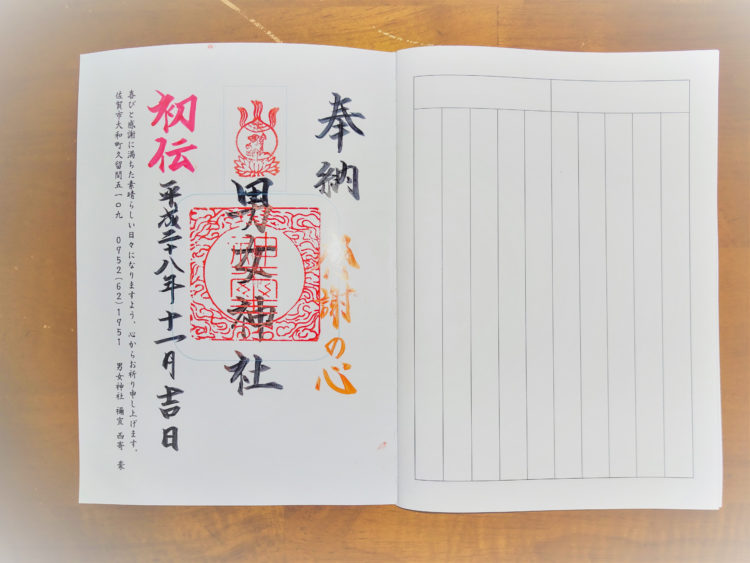 奉納
感謝の心
男女神社
初伝
平成二十八年十一月吉日
喜びと感謝に満ちた素晴らしい日々になりますよう、心からお祈り申し上げます。
佐賀市大和町久留間五一〇九 0952(62)1951 男女神社 禰宜